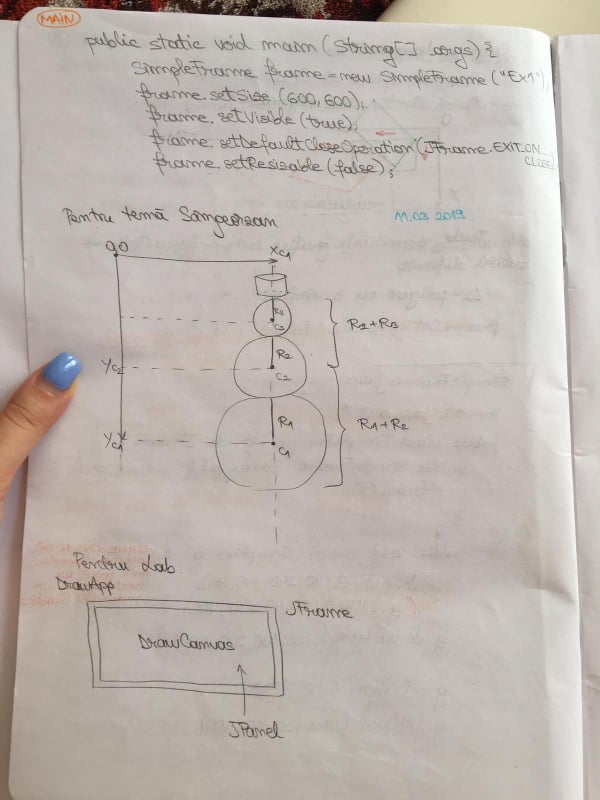 MAIN
public static void main (String[] args) {
SimpleFrame frame = new SimpleFrame ("Ex1");
frame.setSize (600,600);
frame.setVisible (true);
frame.setDefaultCloseOperation (JFrame.EXIT.ON_
CLOSE)
frame.setResizable (false);
Pentru temă Sângeorzan
11.03 2019
0,0
XC1
R3
C3
R2+R3
R2
YC2
C2
R1
R1+R2
YC1
C1
Pentru Lab
DrawApp
JFrame
DrawCanvas
JPanel